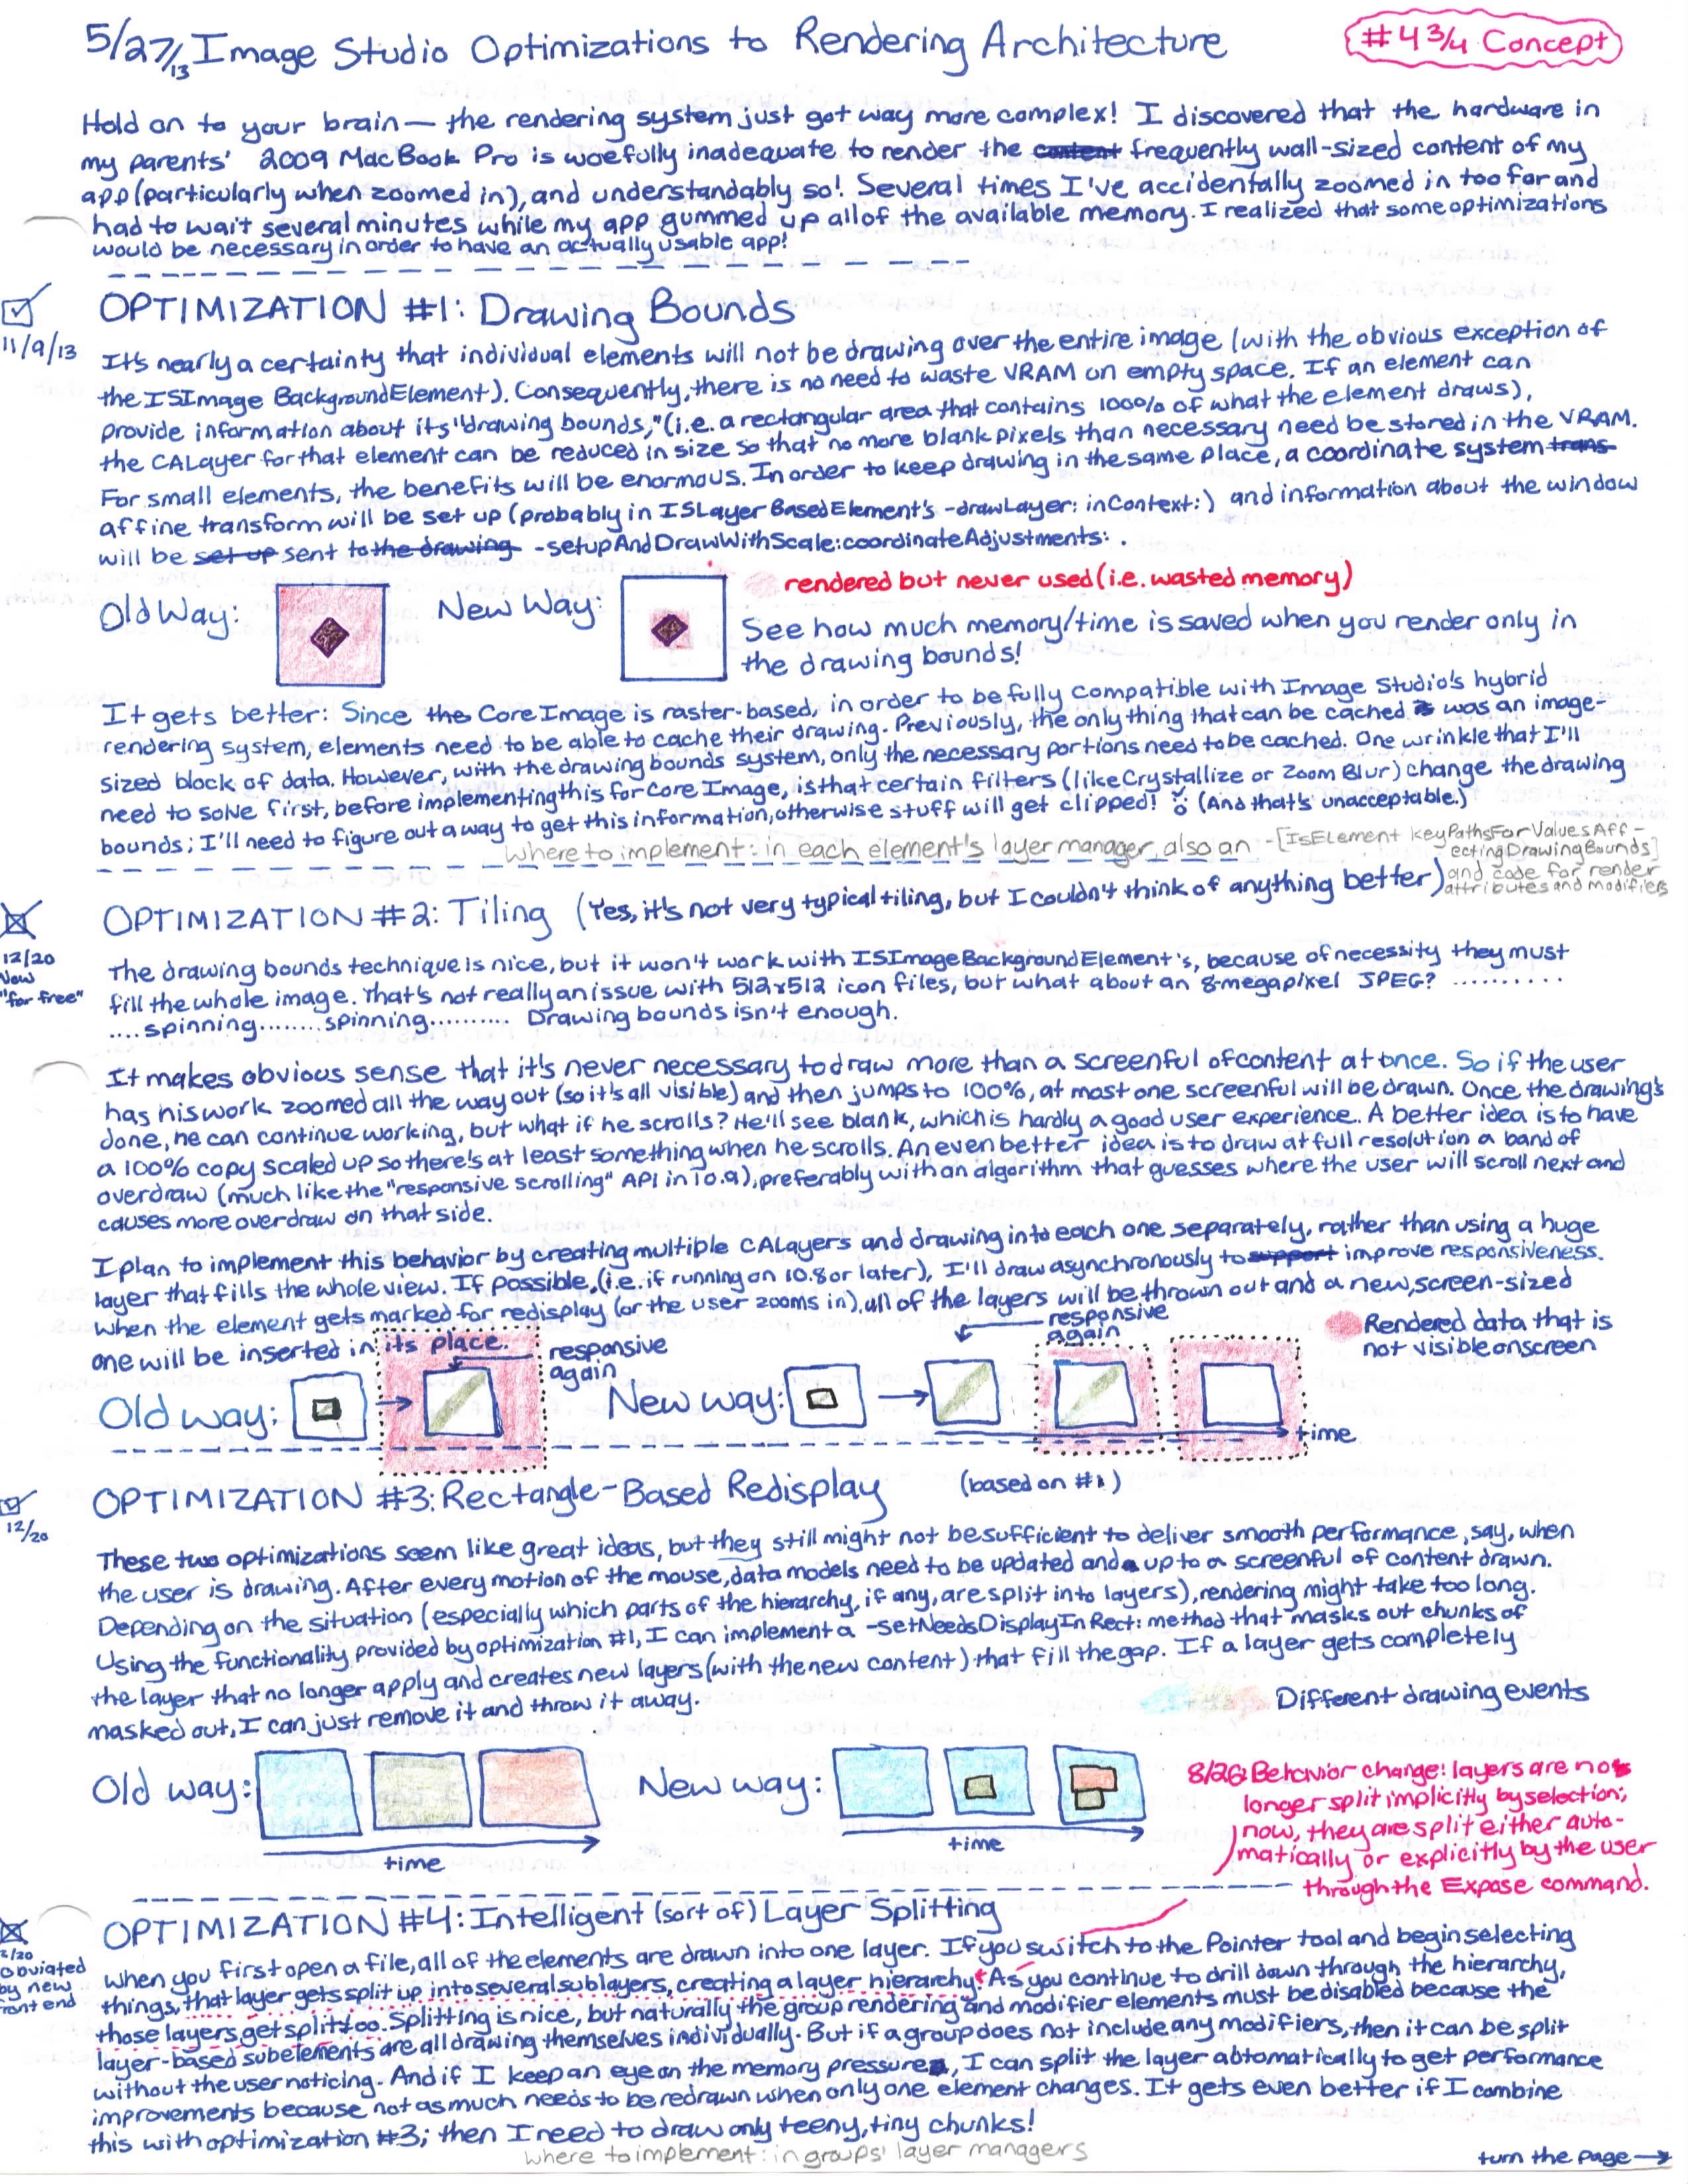 5/27/13 Image Studio Optimizations to Rendering Architecture
#4 3/4 Concept
Hold on to your brain— the rendering system just got way more complex! I discovered that the hardware in
my parents' 2009 MacBook Pro is woefully inadequate to render the content frequently wall-sized content of my
app (particularly when zoomed in), and understandably so! Several times I've accidentally zoomed in too far and
had to wait several minutes while my app gummed up all of the available memory. I realized that some optimizations
would be necessary in order to have an actually usable app!
11/9/13
OPTIMIZATION #1: Drawing Bounds
It's nearly a certainty that individual elements will not be drawing over the entire image (with the obvious exception of
the ISImageBackgroundElement). Consequently, there is no need to waste VRAM on empty space. If an element can
provide information about its "drawing bounds," (i.e. a rectangular area that contains 100% of what the element draws),
the CALayer for that element can be reduced in size so that no more blank pixels than necessary need be stored in the VRAM.
For small elements, the benefits will be enormous. In order to keep drawing in the same place, a coordinate system trans-
affine transform will be set up (probably in ISLayerBasedElement's -drawLayer:inContext:) and information about the window
will be set up sent to the drawing -setupAndDrawWithScale:coordinateAdjustments: .
Old Way:
New Way:
rendered but never used (i.e. wasted memory)
See how much memory/time is saved when you render only in
the drawing bounds!
It gets better: Since the Core Image is raster-based, in order to be fully compatible with Image Studio's hybrid
rendering system, elements need to be able to cache their drawing. Previously, the only thing that can be cached is was an image-
sized block of data. However, with the drawing bounds system, only the necessary portions need to be cached. One wrinkle that I'll
need to solve first, before implementing this for Core Image, is that certain filters (like Crystallize or Zoom Blur) change the drawing
bounds; I'll need to figure out a way to get this information, otherwise stuff will get clipped! (And that's unacceptable.)
where to implement: in each element's layer manager, also an -[IsElement keyPathsForValuesAff-
ectingDrawingBounds]
and code for render
attributes and modifiers
12/20
Now
"for free"
OPTIMIZATION #2: Tiling (Yes, it's not very typical tiling, but I couldn't think of anything better)
The drawing bounds technique is nice, but it won't work with ISImageBackgroundElement's, because of necessity they must
fill the whole image. That's not really an issue with 512x512 icon files, but what about an 8-megapixel JPEG? ..........
....spinning........spinning.......... Drawing bounds isn't enough.
It makes obvious sense that it's never necessary to draw more than a screenful of content at once. So if the user
has his work zoomed all the way out (so it's all visible) and then jumps to 100%, at most one screenful will be drawn. Once the drawing's
done, he can continue working, but what if he scrolls? He'll see blank, which is hardly a good user experience. A better idea is to have
a 100% copy scaled up so there's at least something when he scrolls. An even better idea is to draw at full resolution a band of
overdraw (much like the "responsive scrolling" API in 10.9), preferably with an algorithm that guesses where the user will scroll next and
causes more overdraw on that side.
I plan to implement this behavior by creating multible CALayers and drawing into each one separately, rather than using a huge
layer that fills the whole view. If possible, (i.e. if running on 10.8 or later), I'll draw asynchronously to support improve responsiveness.
When the element gets marked for redisplay (or the user zooms in), all of the layers will be thrown out and a new, screen-sized
one will be inserted in its place.
responsive
again
responsive
again
Rendered data that is
not visible onscreen
Old way:
New way:
time
12/20
OPTIMIZATION #3: Rectangle-Based Redisplay (based on #1)
These two optimizations seem like great ideas, but they still might not be sufficient to deliver smooth performance, say, when
the user is drawing. After every motion of the mouse, data models need to be updated and up to a screenful of content drawn.
Depending on the situation (especially which parts of the hierarchy, if any, are split into layers), rendering might take too long.
Using the functionality provided by optimization #1, I can implement a -setNeedsDisplayInRect: method that masks out chunks of
the layer that no longer apply and creates new layers (with the new content) that fill the gap. If a layer gets completely
masked out, I can just remove it and throw it away.
Different drawing events
Old way:
time
New way:
time
8/26: Behavior change: layers are no
longer split implicitly by selection;
now, they are split either auto-
matically or explicitly by the user
through the Expose command.
12/20
obviated
by new
front end
OPTIMIZATION #4: Intelligent (sort of) Layer Splitting
When you first open a file, all of the elements are drawn into one layer. If you switch to the Pointer tool and begin selecting
things, that layer gets split up into several sublayers, creating a layer hierarchy. As you continue to drill down through the hierarchy,
those layers get split too. Splitting is nice, but naturally the group rendering and modifier elements must be disabled because the
layer-based subelements are all drawing themselves individually. But if a group does not include any modifiers, then it can be split
without the user noticing. And if I keep an eye on the memory pressure, I can split the layer abtomatically to get performance
improvements because not as much needs to be redrawn when only one element changes. It gets even better if I combine
this with optimization #3; then I need to draw only teeny, tiny chunks!
where to implement: in groups' layer managers
turn the page →